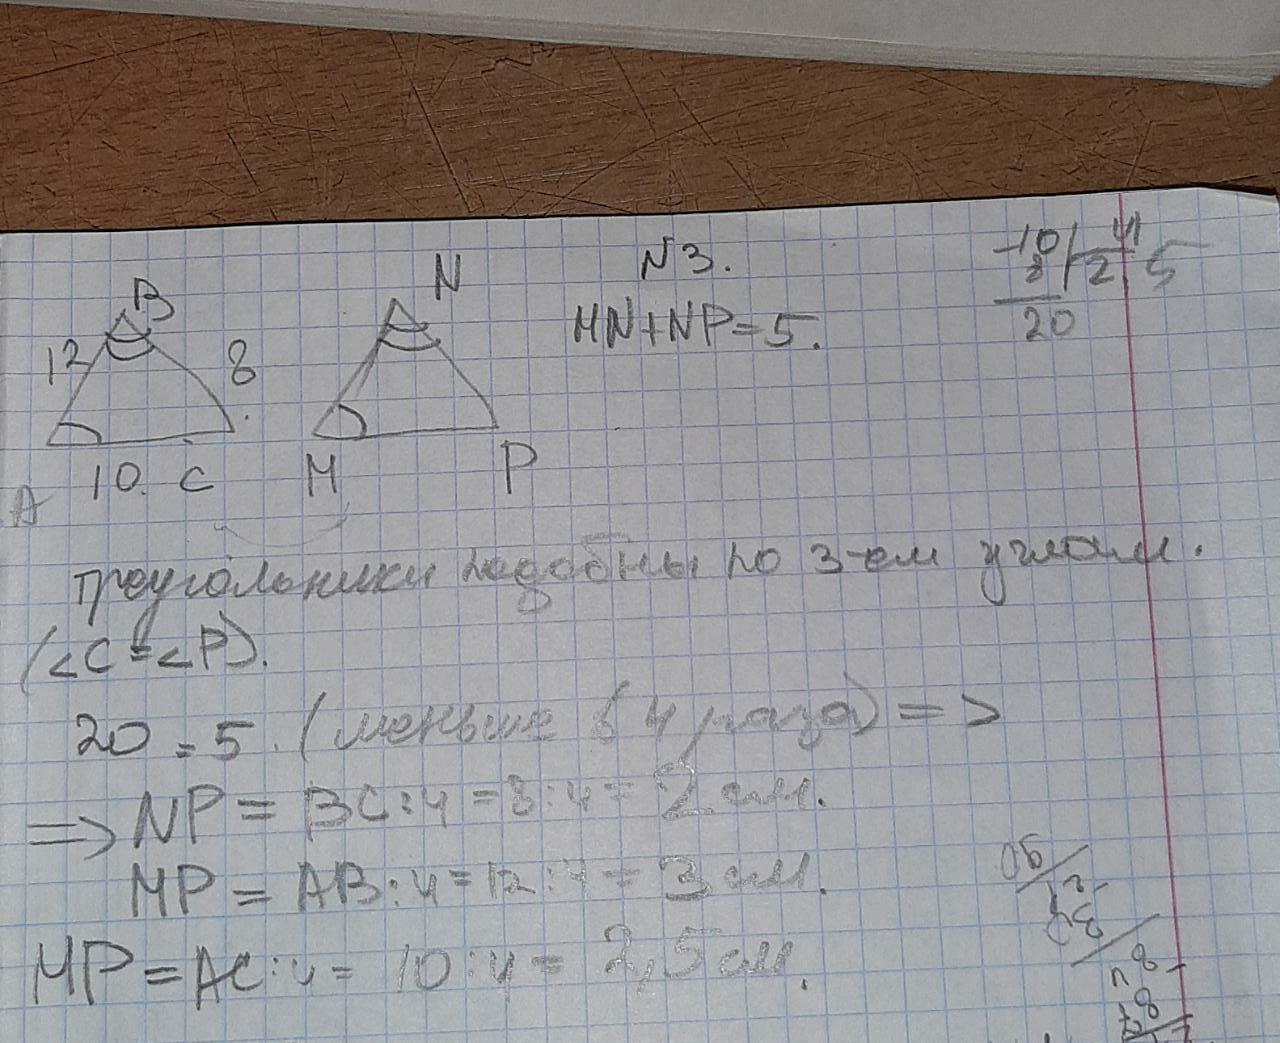 N3.
B
N
12
8
MN+NP=5.
10
4
8
2,5
20
A
10. C
M
P
треугольники подобны по 3-ем углам.
(<C=<P).
20 = 5. (меньше в 4 раза) =>
=> NP = BC:4 = 8:4 = 2 см.
MP = AB:4 = 12:4 = 3 см.
MP = AC:4 = 10:4 = 2,5 см.